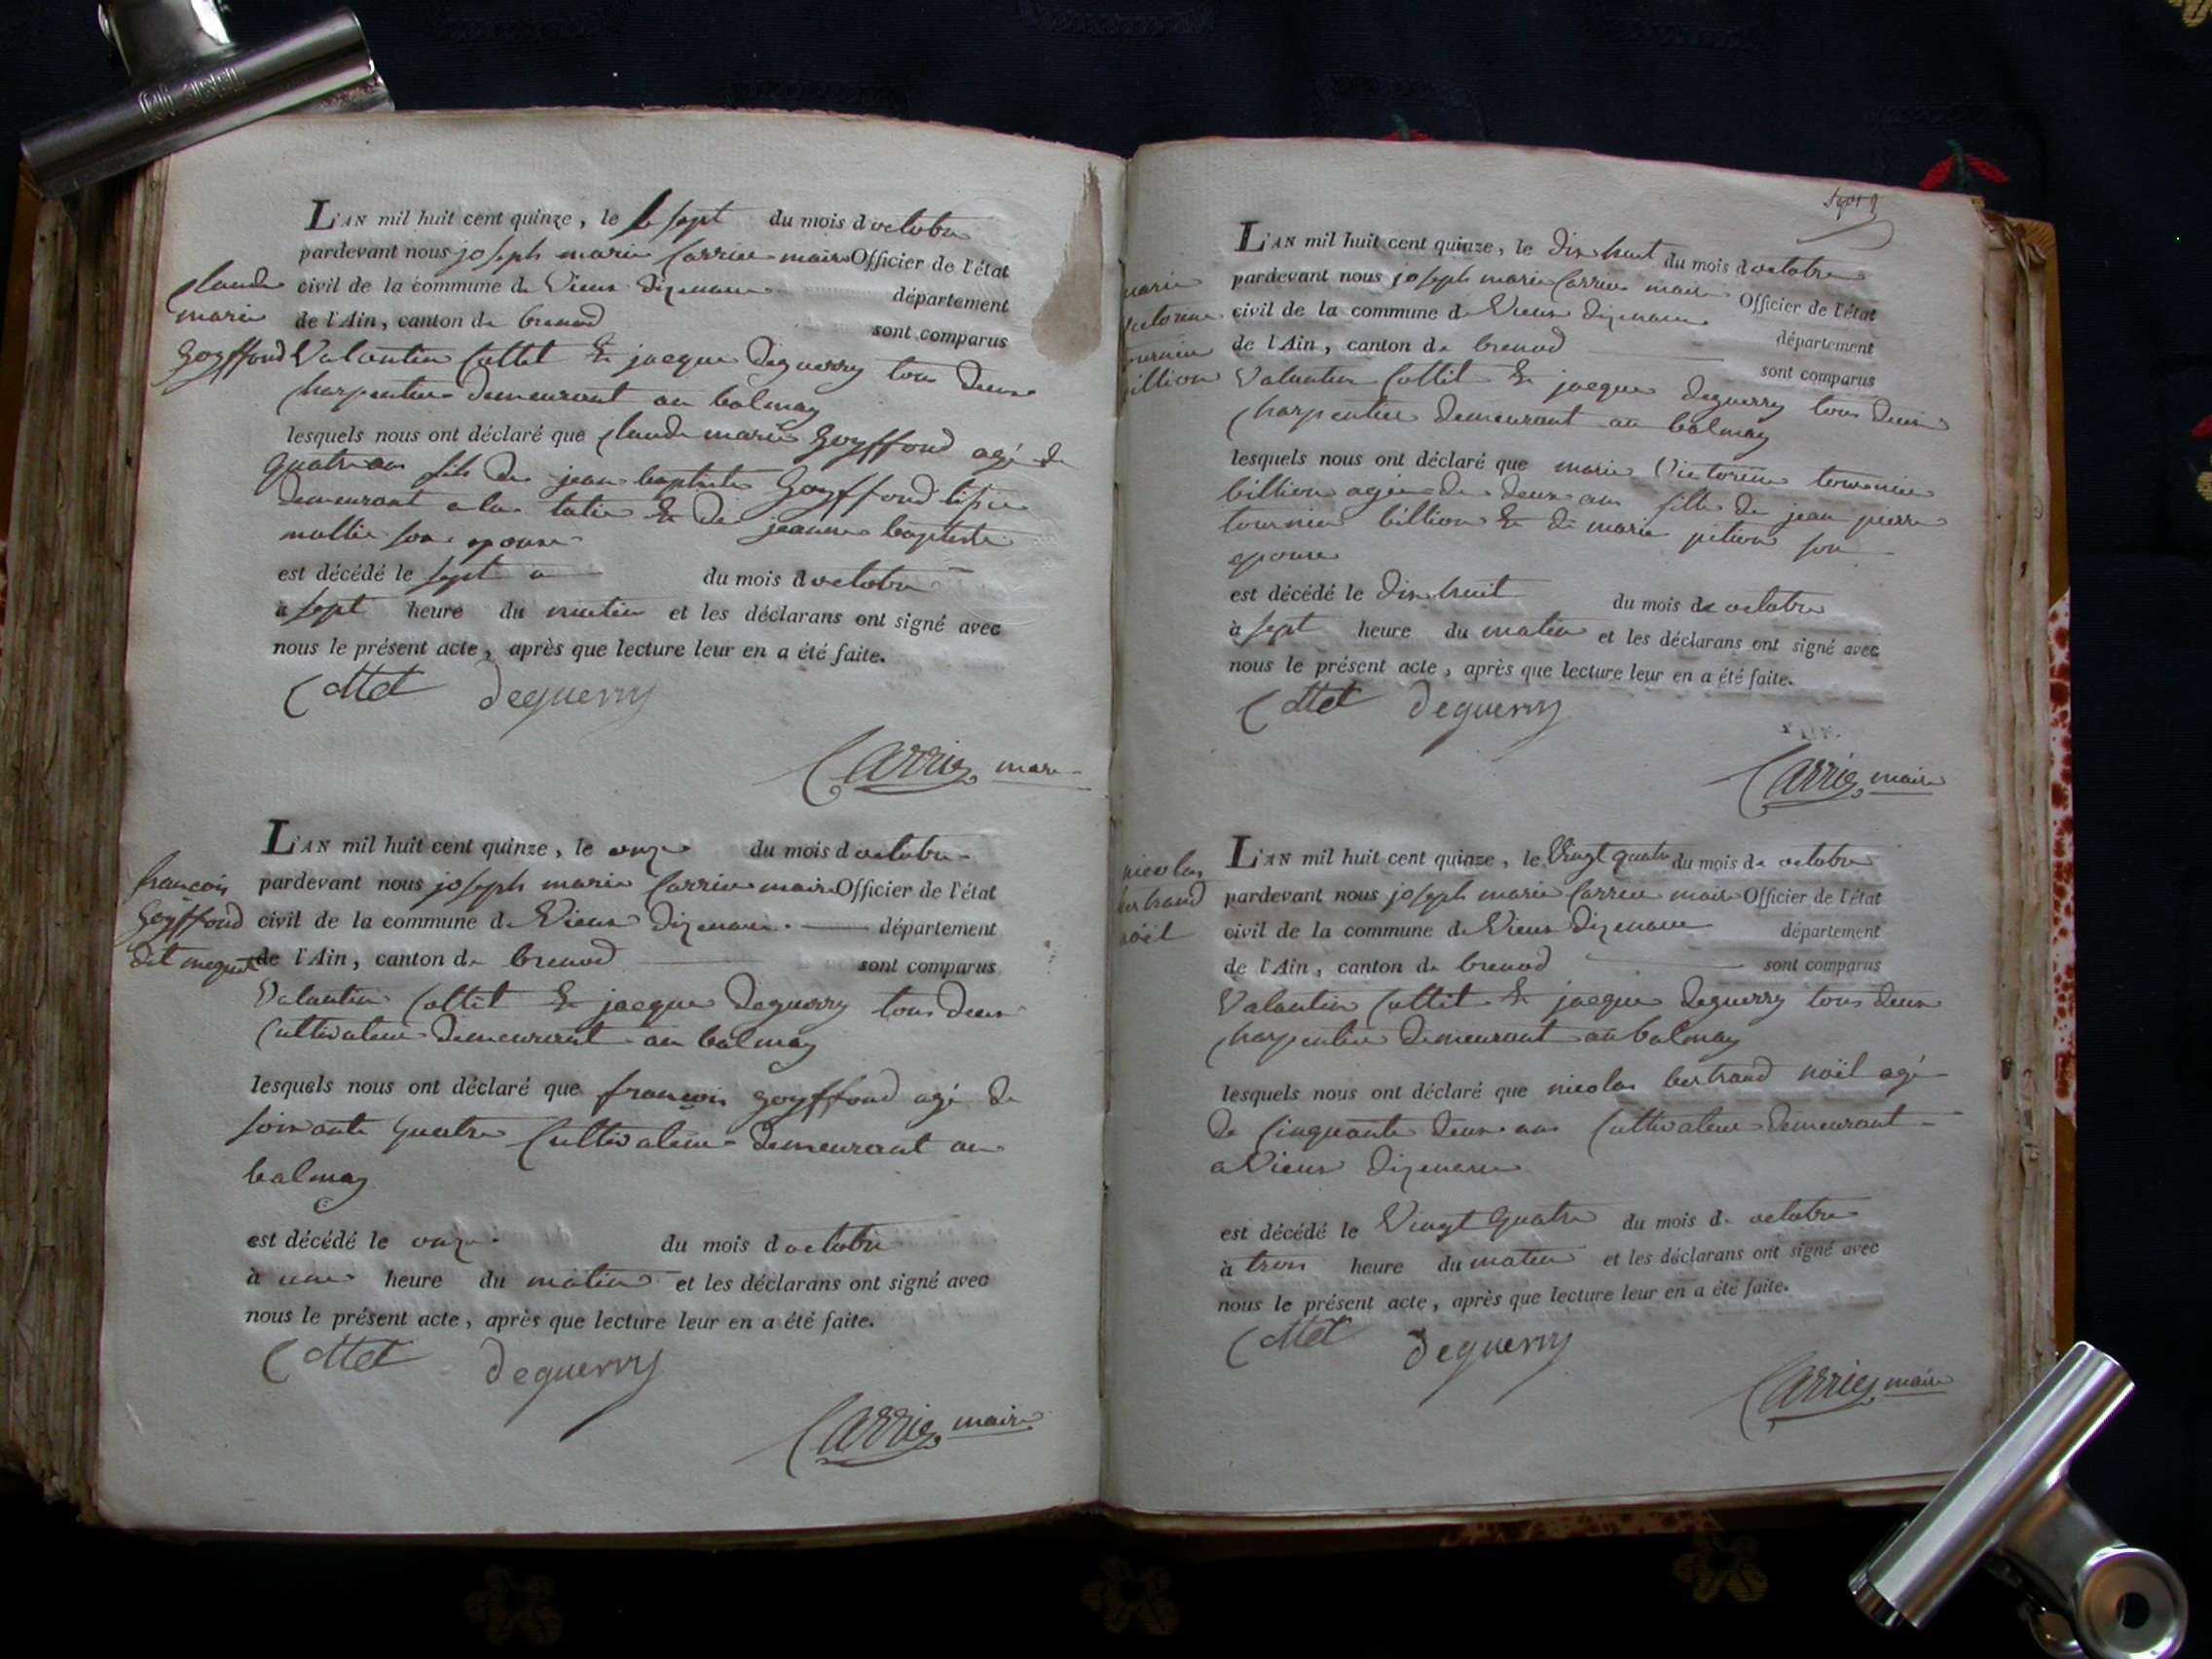 L'AN mil huit cent quinze, le sept du mois d octobre
pardevant nous joseph marie Carrier maire Officier de l'état
civil de la commune de Vieux dizenave département
de l'Ain, canton de brenod sont comparus
Valantin Cottet & jacque deguerry tous deux
charpentier demeurant au balmay
lesquels nous ont déclaré que claude marie goyffond agé de
quatre ans fils de jean baptiste goyffond
demeurant a la & de jeanne baptiste
son epouse
est décédé le sept du mois d octobre
à sept heure du matin et les déclarans ont signé avec
nous le présent acte, après que lecture leur en a été faite.
Cottet deguerry
Carrier maire
claude
marie
goyffond
L'AN mil huit cent quinze, le onze du mois d octobre
pardevant nous joseph marie Carrier maire Officier de l'état
civil de la commune de Vieux dizenave département
de l'Ain, canton de brenod sont comparus
Valantin Cottet & jacque deguerry tous deux
Cultivateur demeurant au balmay
lesquels nous ont déclaré que françois goyffond agé de
soixante quatre Cultivateur demeurant au
balmay
est décédé le onze du mois d octobre
à une heure du matin et les déclarans ont signé avec
nous le présent acte, après que lecture leur en a été faite.
Cottet deguerry
Carrier maire
françois
goyffond
dit
L'AN mil huit cent quinze, le dix huit du mois d octobre
pardevant nous joseph marie Carrier maire Officier de l'état
civil de la commune de Vieux dizenave département
de l'Ain, canton de brenod sont comparus
Valantin Cottet & jacque deguerry tous deux
charpentier demeurant au balmay
lesquels nous ont déclaré que marie Victorine tournier
billion agée de deux ans fille de jean pierre
tournier billion & de marie pitiion son
epouse
est décédé le dix huit du mois de octobre
à sept heure du matin et les déclarans ont signé avec
nous le présent acte, après que lecture leur en a été faite.
Cottet deguerry
Carrier maire
L'AN mil huit cent quinze, le Vingt quatre du mois de octobre
pardevant nous joseph marie Carrier maire Officier de l'état
civil de la commune de Vieux dizenave département
de l'Ain, canton de brenod sont comparus
Valantin Cottet & jacque deguerry tous deux
charpentier demeurant au balmay
lesquels nous ont déclaré que nicolas bertrand noël agé
de Cinquante deux ans Cultivateur demeurant
a Vieux dizenave
est décédé le Vingt quatre du mois de octobre
à trois heure du matin et les déclarans ont signé avec
nous le présent acte, après que lecture leur en a été faite.
Cottet deguerry
Carrier maire
nicolas
bertrand
noël